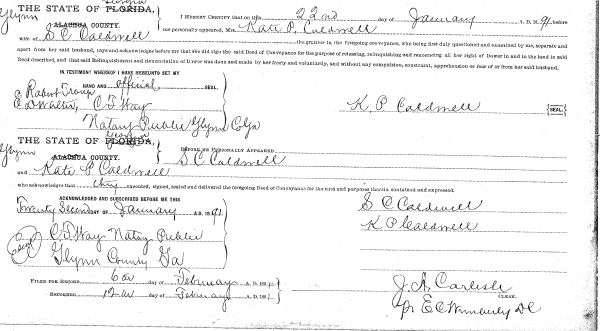 Georgia
THE STATE OF FLORIDA,
Glynn
ALACHUA COUNTY.
I HEREBY CERTIFY that on this 22nd day of January A. D. 1891, before
me personally appeared, Mrs. Kate P. Caldwell
wife of S. C. Caldwell the grantor in the foregoing conveyance, who being first duly questioned and examined by me, separate and
apart from her said husband, says and acknowledges before me that she did sign the said Deed of Conveyance for the purpose of releasing, relinquishing and renouncing all her right of Dower in and to the land in said
Deed described, and that said Relinquishment and Renunciation of Dower was done and made by her freely and voluntarily, and without any compulsion, constraint, apprehension or fear of or from her said husband.
IN TESTIMONY WHEREOF I HAVE HEREUNTO SET MY
HAND AND official SEAL.
E Robert Troup
C. D. Walter, C T Way
Notary Public Glynn Co Ga
K. P Caldwell SEAL
Georgia
THE STATE OF FLORIDA,
Glynn
ALACHUA COUNTY.
BEFORE ME PERSONALLY APPEARED S C Caldwell
and Kate P Caldwell
who acknowledges that they executed, signed, sealed and delivered the foregoing Deed of Conveyance for the uses and purposes therein contained and expressed.
ACKNOWLEDGED AND SUBSCRIBED BEFORE ME THIS
Twenty Second DAY OF January A. D. 1891
Seal
C T Way Notary Public
Glynn County Ga
S C Caldwell
K P Caldwell
FILED FOR RECORD 6 day of February A. D. 1891
RECORDED 12 day of February A. D. 1891
J. A. Carlisle
CLERK.
pr E C Wimberly DC